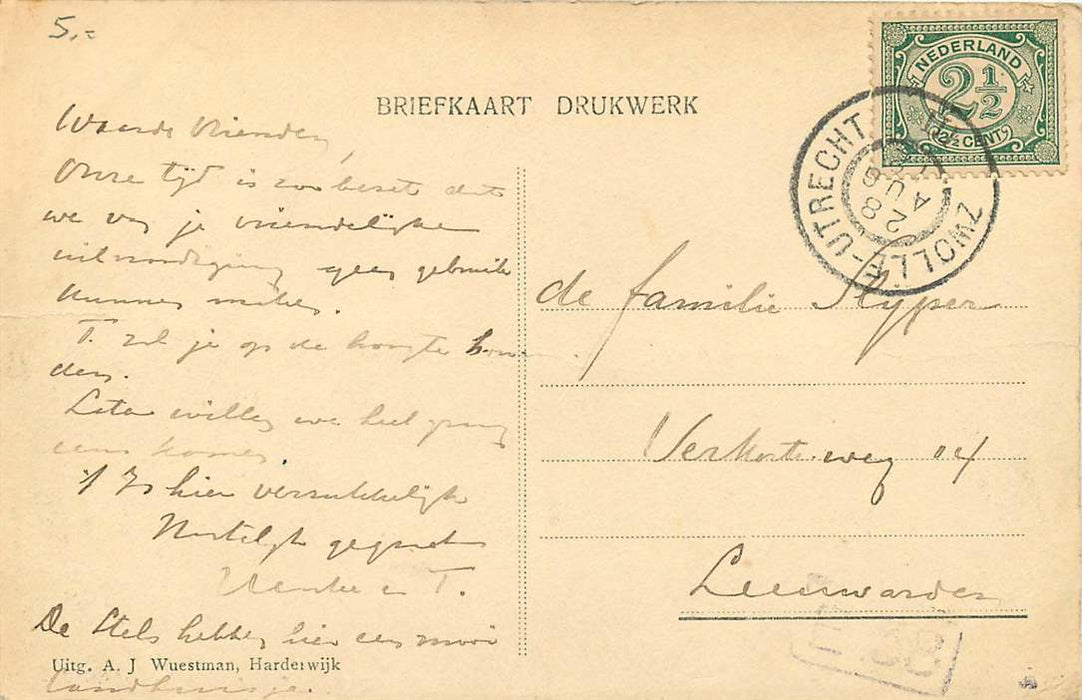 5,=
BRIEFKAART DRUKWERK
NEDERLAND
2½
2½ CENT
ZWOLLE-UTRECHT
28 AUG
Waarde Vrienden,
Onze tijd is zoo bezet dat
we van je vriendelijke
uitnoodiging geen gebruik
kunnen maken.
T. zal je op de hoogte hou
den.
Later willen we heel graag
eens komen.
't Is hier verrukkelijk
Hartelijk gegroet
en T.
De Stels hebben hier een mooi
landhuisje.
Uitg. A. J Wuestman, Harderwijk
de familie
weg
Leeuwarden